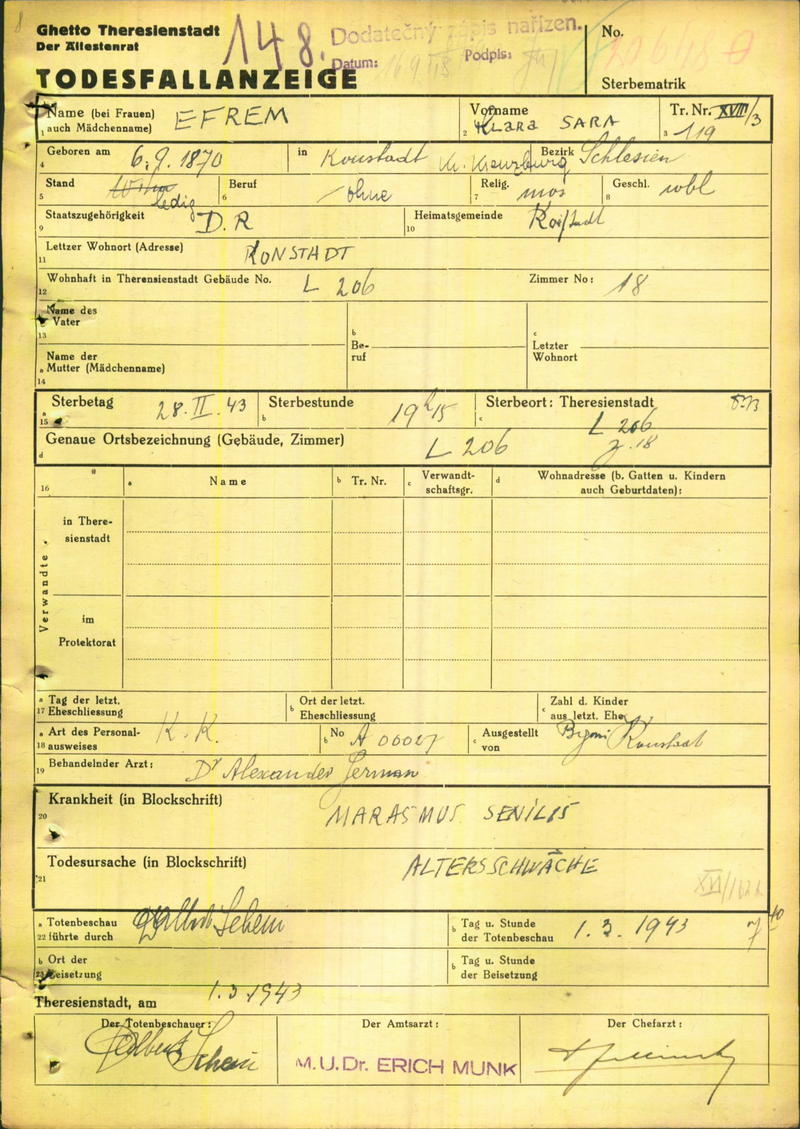 Ghetto Theresienstadt
Der Ältestenrat
148.
Dodatečný zápis nařízen.
Datum:
Podpis:
No.
TODESFALLANZEIGE
Sterbematrik
Name (bei Frauen) auch Mädchenname) EFREM
1
Vorname KLARA SARA
2
Tr. Nr. XVIII/3
3 119
Geboren am 6.9.1870 in Konstadt Kr. Kreuzburg Bezirk Schlesien
4
Stand ledig Beruf ohne Relig. mos Geschl. wbl
5 6 7 8
Staatszugehörigkeit D.R Heimatsgemeinde Konstadt
9 10
Lettzer Wohnort (Adresse) KONSTADT
11
Wohnhaft in Therensienstadt Gebäude No. L 206 Zimmer No: 18
12
a Name des Vater b Be-ruf c Letzter Wohnort
13
a Name der Mutter (Mädchenname)
14
a Sterbetag 28.II.43 b Sterbestunde 19h15 c Sterbeort: Theresienstadt
15 L 206
z. 18
d Genaue Ortsbezeichnung (Gebäude, Zimmer) L 206
16 a Name b Tr. Nr. c Verwandt-schaftsgr. d Wohnadresse (b. Gatten u. Kindern auch Geburtdaten):
Verwandte
in There-sienstadt
im Protektorat
a Tag der letzt. Eheschliessung b Ort der letzt. Eheschliessung c Zahl d. Kinder aus letzt. Ehe
17
a Art des Personal-ausweises K.K. b No A 00027 c Ausgestellt von Bgm Konstadt
18
Behandelnder Arzt: Dr Alexander German
19
Krankheit (in Blockschrift) MARASMUS SENILIS
20
Todesursache (in Blockschrift) ALTERSSCHWÄCHE
21
a Totenbeschau führte durch b Tag u. Stunde der Totenbeschau 1.3.1943 7 40
22
b Ort der Beisetzung b Tag u. Stunde der Beisetzung
23
Theresienstadt, am 1.3.1943
Der Totenbeschauer: Der Amtsarzt: Der Chefarzt:
M.U.Dr. ERICH MUNK